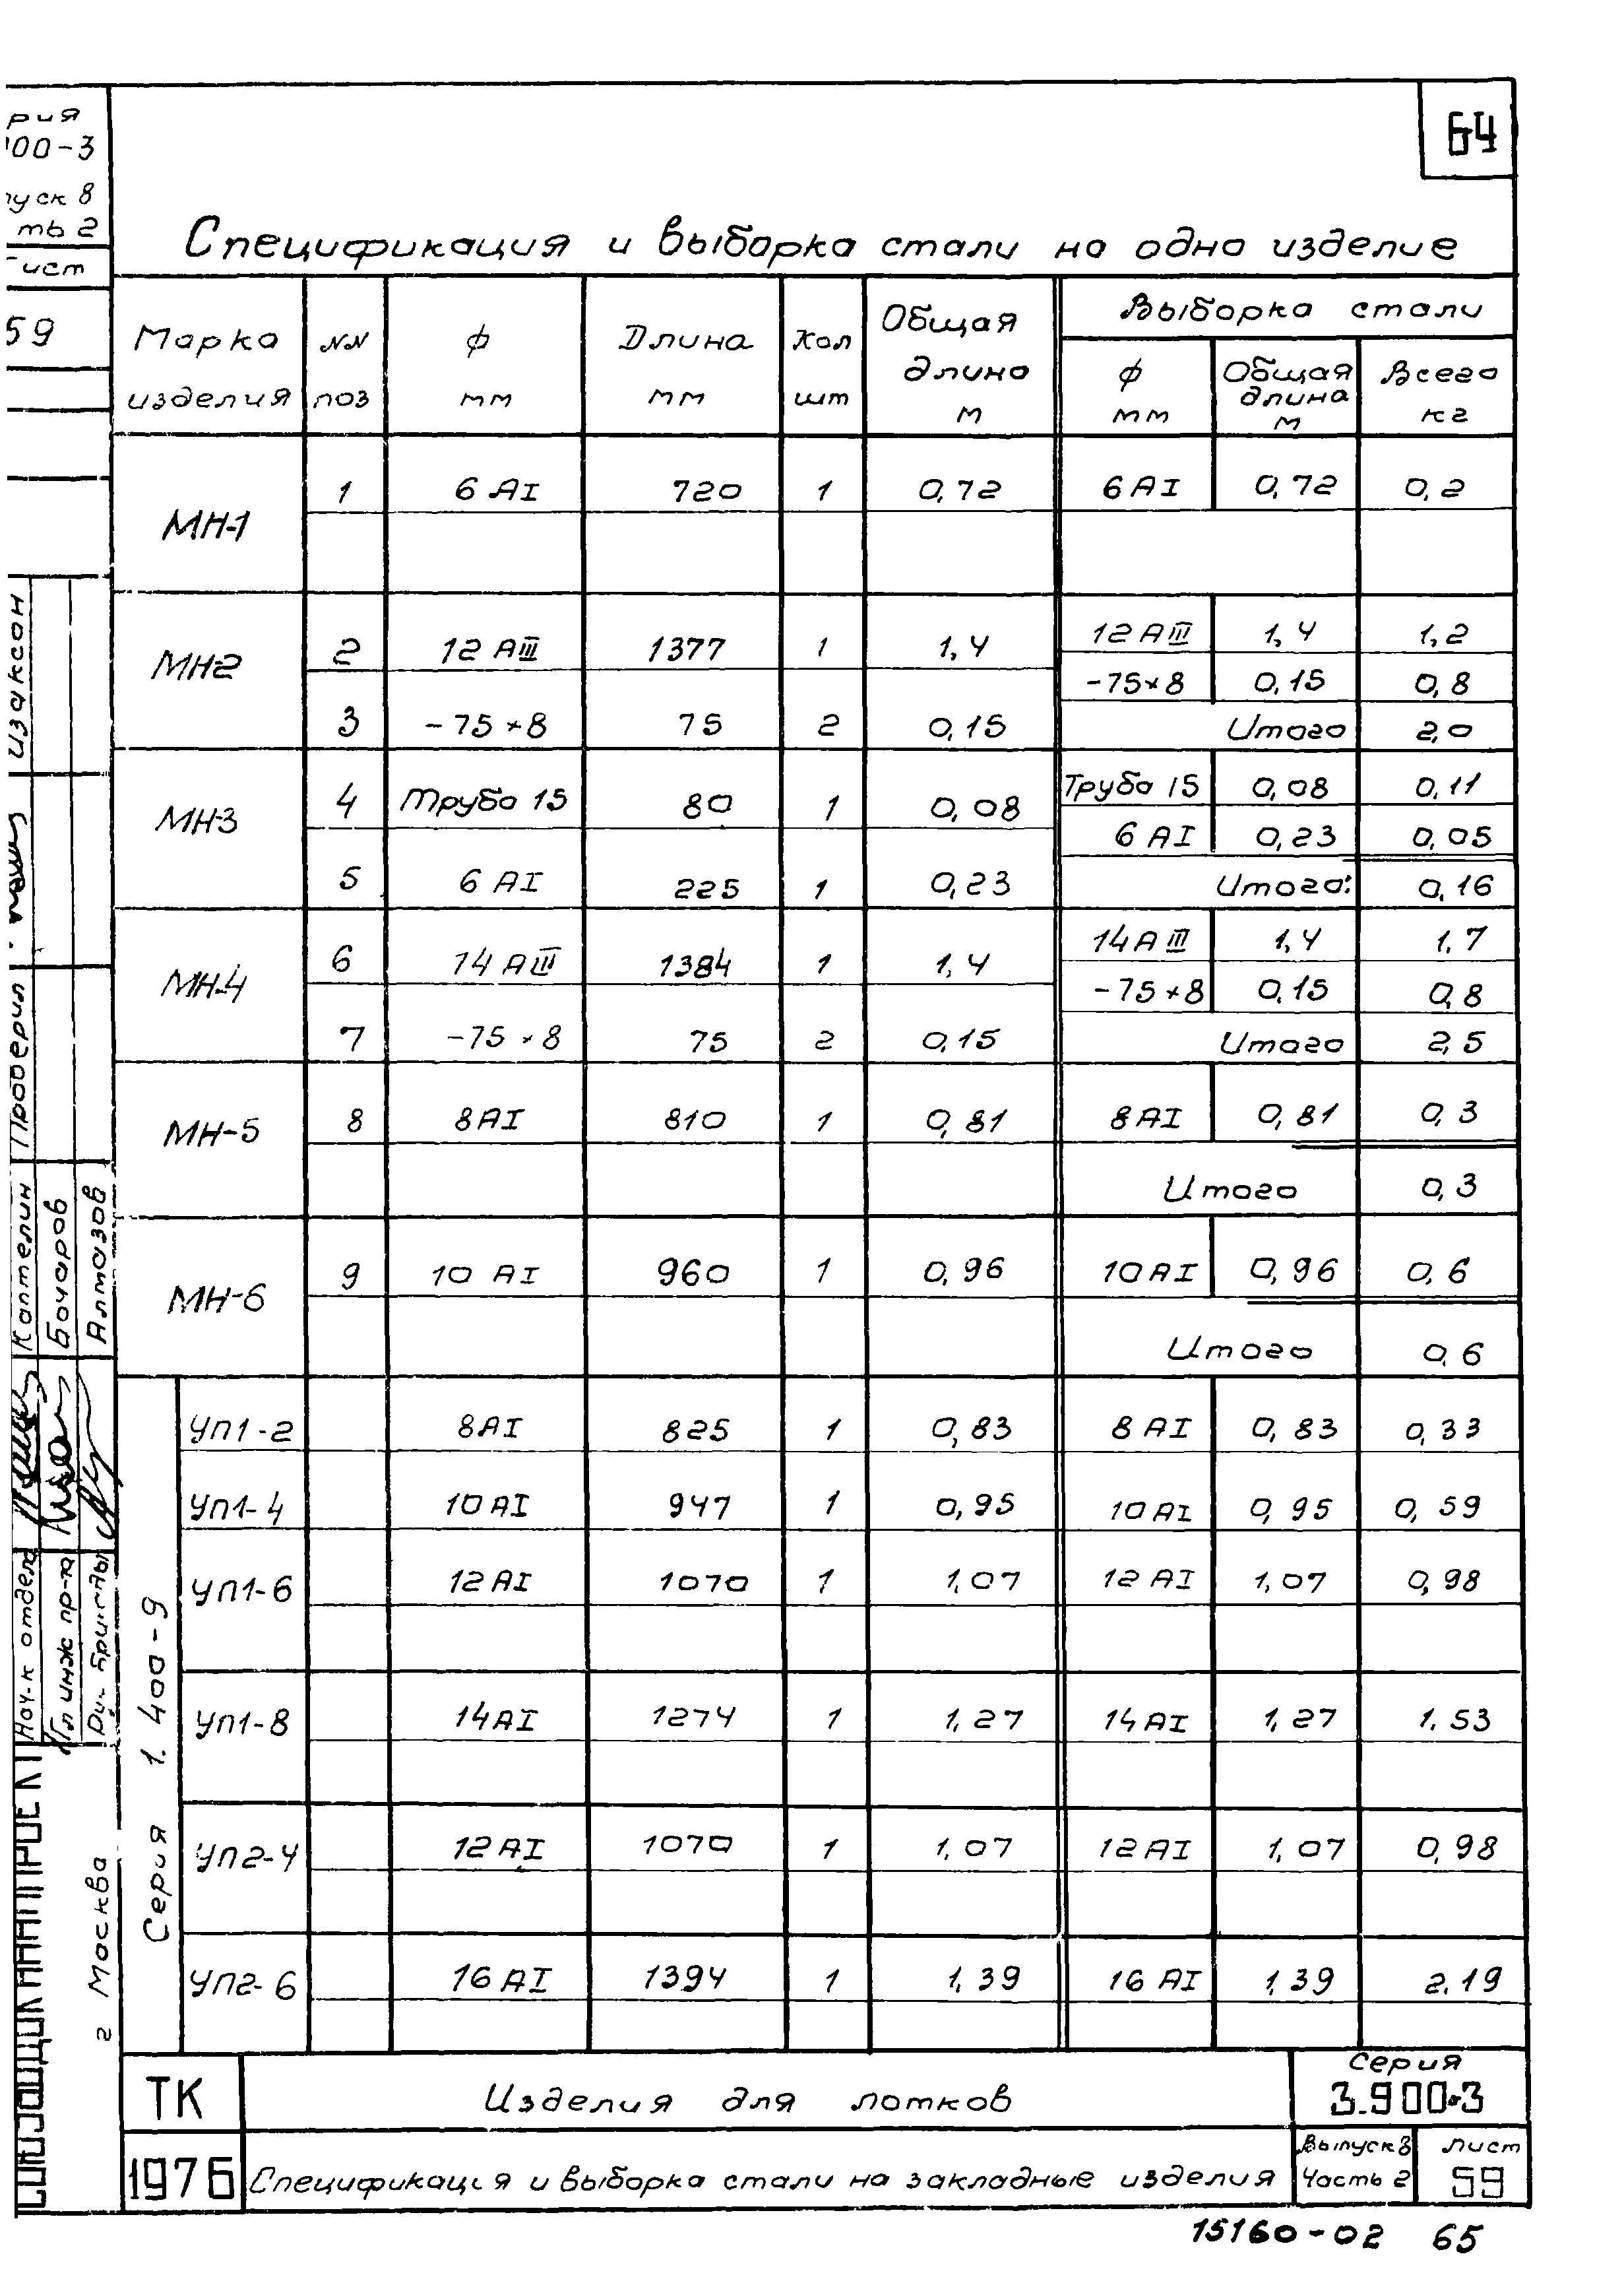 64
рия
900-3
пуск 8
ть 2
Лист
59
Спецификация и выборка стали на одно изделие
Марка изделия NN поз ф мм Длина мм Кол шт Общая длина м Выборка стали
ф мм Общая длина м Всего кг
МН-1 1 6 АI 720 1 0,72 6 АI 0,72 0,2
МН2 2 12 АIII 1377 1 1,4 12 АIII 1,4 1,2
-75×8 0,15 0,8
3 -75×8 75 2 0,15 Итого 2,0
МН3 4 Труба 15 80 1 0,08 Труба 15 0,08 0,11
6 АI 0,23 0,05
5 6 АI 225 1 0,23 Итого: 0,16
МН-4 6 14 АIII 1384 1 1,4 14 АIII 1,4 1,7
-75×8 0,15 0,8
7 -75×8 75 2 0,15 Итого 2,5
МН-5 8 8АI 810 1 0,81 8АI 0,81 0,3
Итого 0,3
МН-6 9 10 АI 960 1 0,96 10АI 0,96 0,6
Итого 0,6
Серия 1.400-9
УП1-2 8АI 825 1 0,83 8 АI 0,83 0,33
УП1-4 10АI 947 1 0,95 10 АI 0,95 0,59
УП1-6 12АI 1070 1 1,07 12 АI 1,07 0,98
УП1-8 14АI 1274 1 1,27 14 АI 1,27 1.53
УП2-4 12АI 1070 1 1,07 12АI 1,07 0,98
УП2-6 16 АI 1394 1 1,39 16 АI 1,39 2.19
Изаксон
Проверил
Каптелин
Бочаров
Алмазов
Нач-к отдела
Гл инж пр-та
Рук. бригады
СОЮЗВОДОКАНАЛПРОЕКТ
г Москва
ТК
1976
Изделия для лотков
Спецификация и выборка стали на закладные изделия
Серия
3.900-3
Выпуск 8
Часть 2
Лист
59
15160-02 65